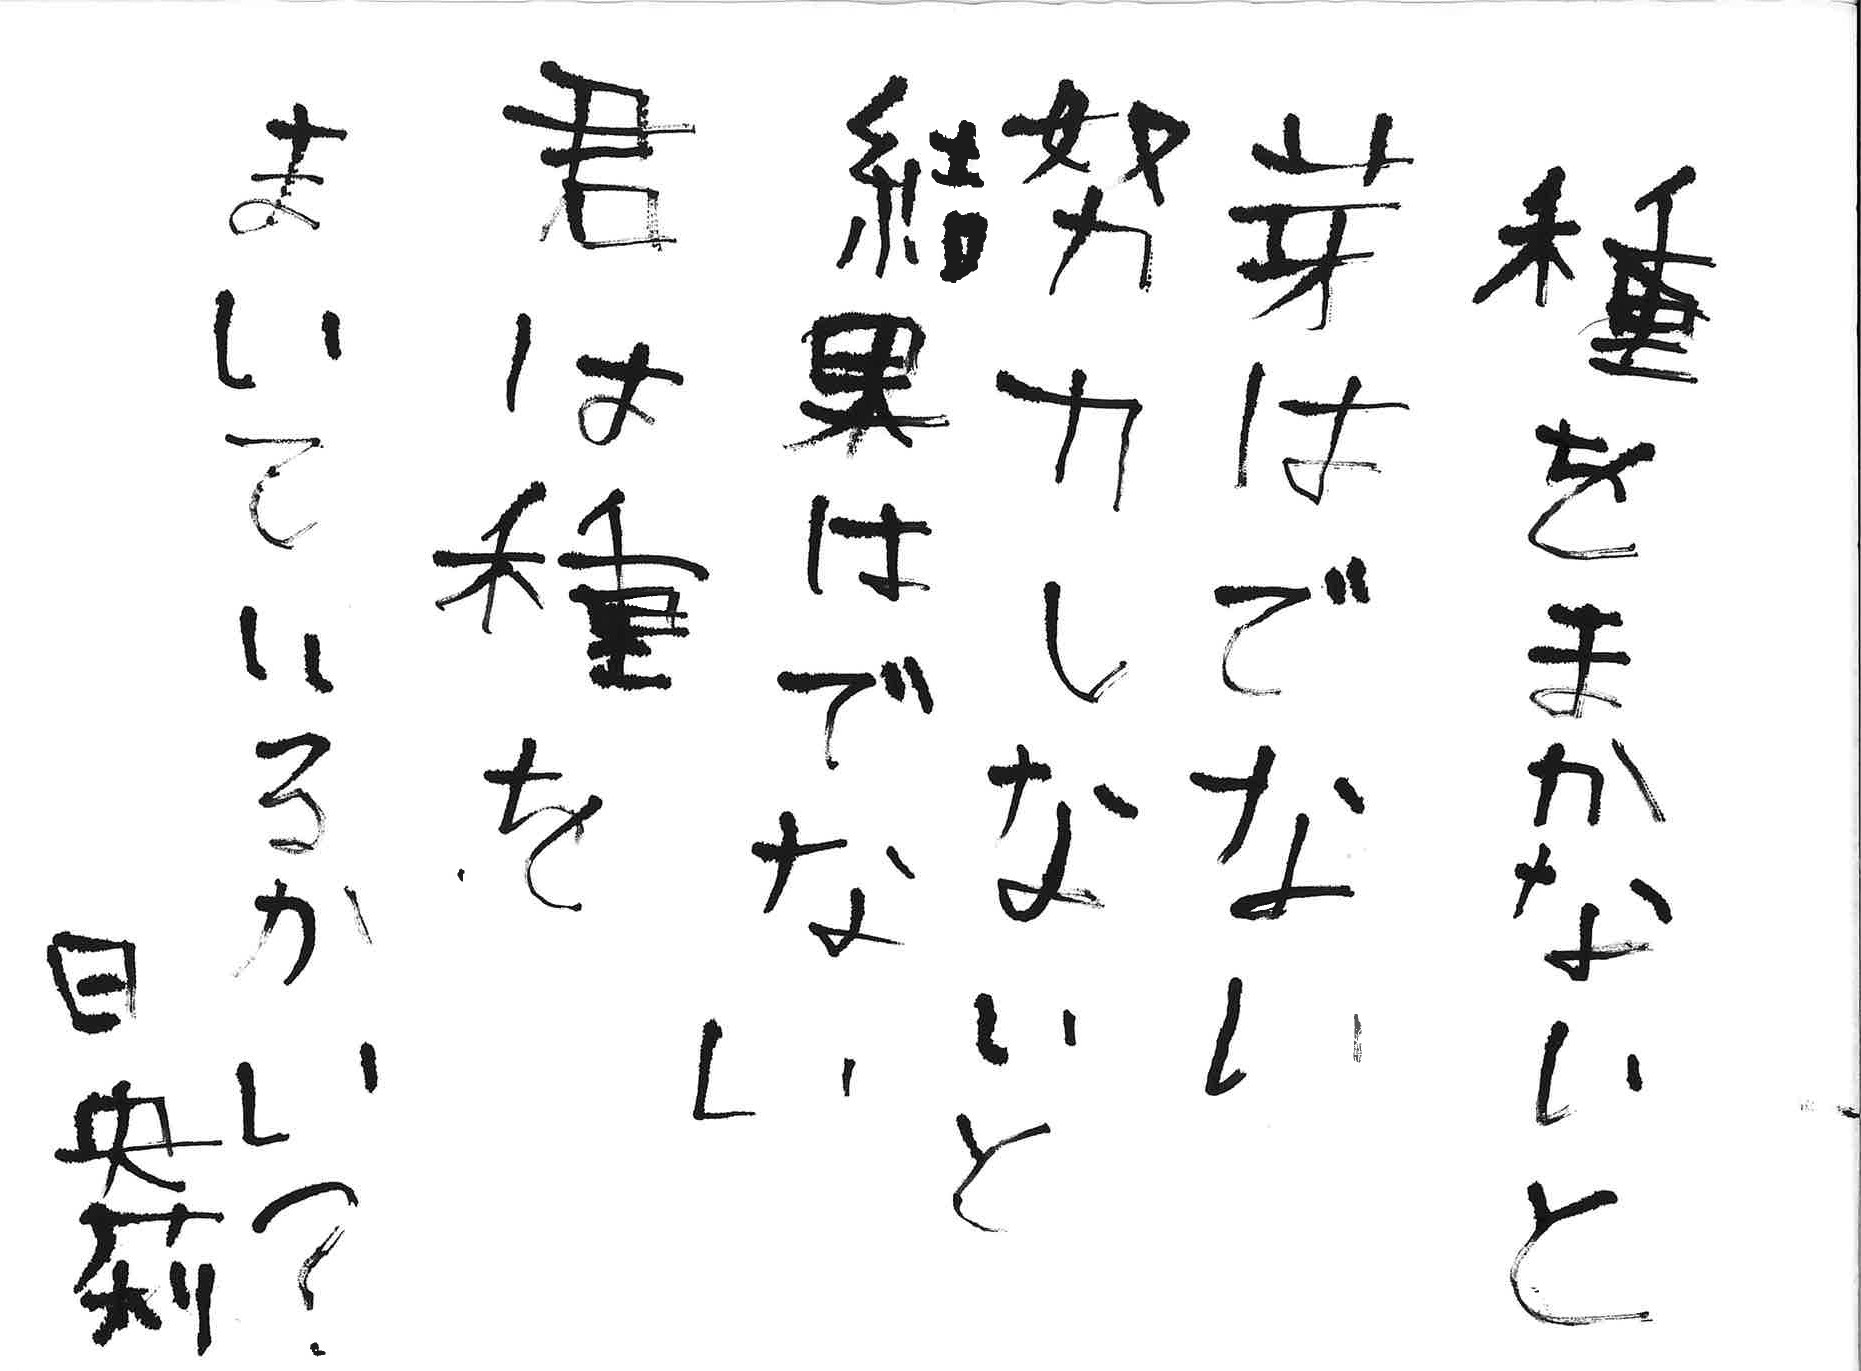 種をまかないと
芽はでない
努力しないと
結果はでない
君は種を
まいているかい?
日央莉